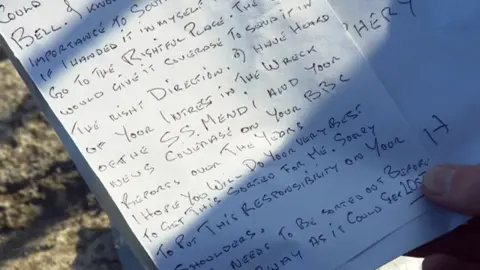 COULD
BELL. I KNOW
IMPORTANCE TO SOUT
IF I HANDED IT IN MYSELF
GO TO THE RIGHTFUL PLACE. THE
WOULD GIVE IT COVERAGE TO SEND IT IN
THE RIGHT DIRECTION. I HAVE HEARD
OF YOUR INTRES IN THE WRECK
OF THE SS. MENDI AND YOUR
NEWS COVERAGE ON YOUR BBC
REPORTS OVER THE YEARS
I HOPE YOU WILL DO YOUR VERY BEST
TO GET THIS SORTED FOR ME. SORRY
TO PUT THIS RESPONSIBILITY ON YOUR
SHOULDERS.
NEEDS TO BE SORTED OUT BEFORE
AWAY AS IT COULD GET LOST
HERY